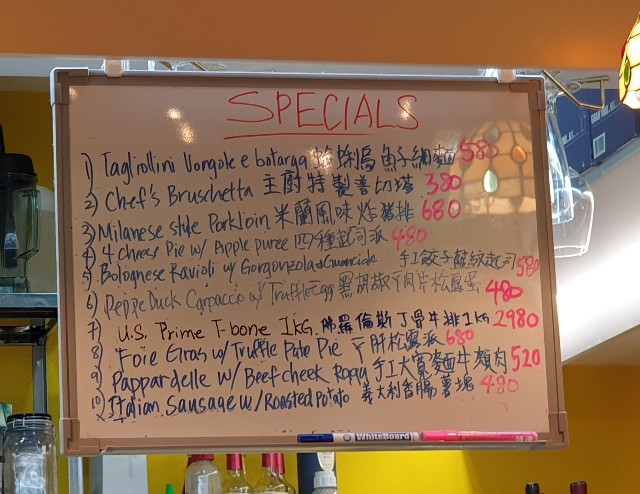 SPECIALS
1) Tagliollini Vongole e botarga 蛤蜊烏魚子細麵 580
2) Chef's Bruschetta 主廚特製普切塔 380
3) Milanese style Porkloin 米蘭風味炸豬排 680
4) 4 cheese Pie w/ Apple puree 四種起司派 480
5) Bolognese Ravioli w/ Gorgonzola & Guanciale 手工餃子藍紋起司 580
6) Peppe Duck Carpaccio w/ Truffle Egg 黑胡椒鴨肉片松露蛋 480
7) U.S. Prime T-bone 1KG. 佛羅倫斯丁骨牛排1kg 2980
8) Foie Gras w/ Truffle Pate Pie 肝松露派 680
9) Pappardelle w/ Beefcheek Ragu 手工大寬麵牛頰肉 520
10) Italian Sausage w/ Roasted Potato 義大利香腸薯塊 480
WhiteBoard